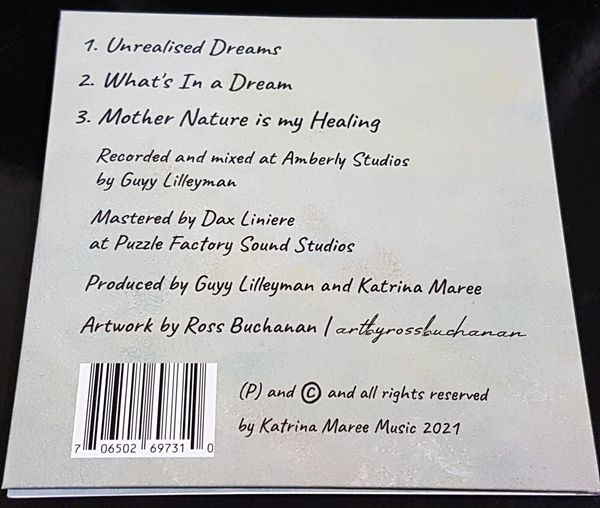 1. Unrealised Dreams
2. What's In a Dream
3. Mother Nature is my Healing
Recorded and mixed at Amberly Studios
by Guyy Lilleyman
Mastered by Dax Liniere
at Puzzle Factory Sound Studios
Produced by Guyy Lilleyman and Katrina Maree
Artwork by Ross Buchanan | artbyrossbuchanan
(P) and © and all rights reserved
by Katrina Maree Music 2021
7 06502 69731 0